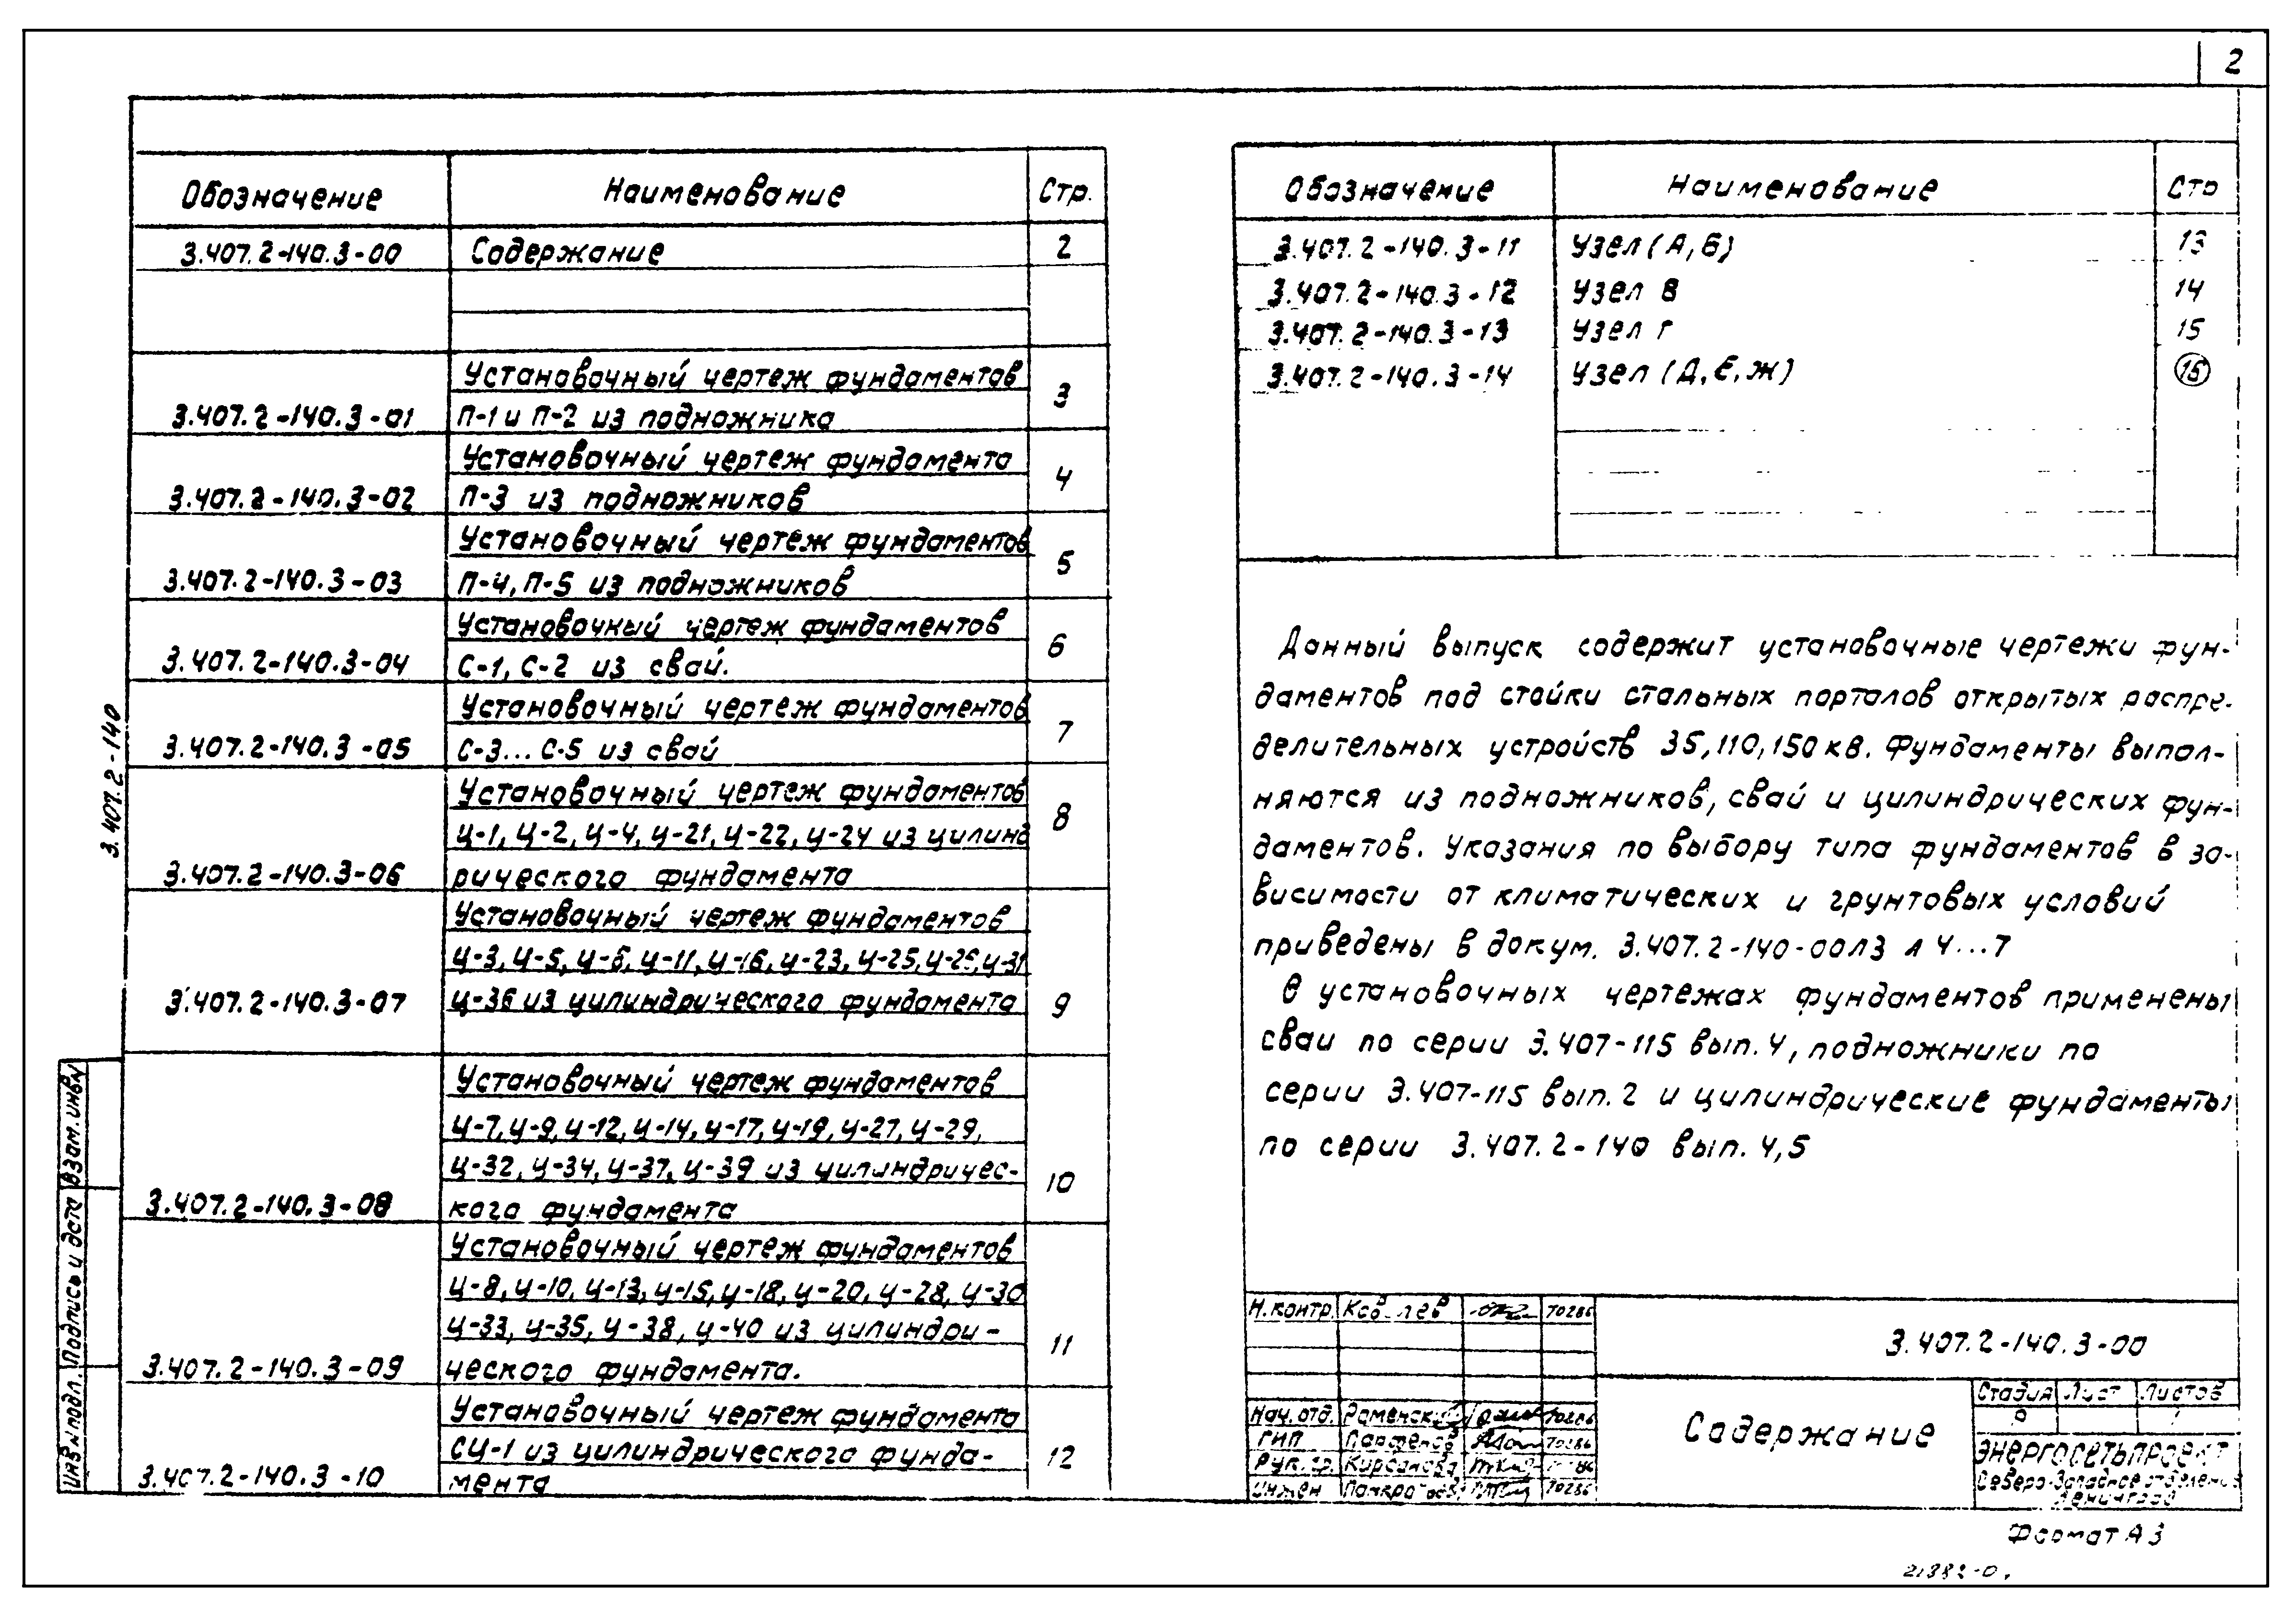 2
Обозначение Наименование Стр.
3.407.2-140.3-00 Содержание 2
Установочный чертеж фундаментов
3.407.2-140.3-01 П-1 и П-2 из подножника 3
Установочный чертеж фундамента
3.407.2-140.3-02 П-3 из подножников 4
Установочный чертеж фундаментов
3.407.2-140.3-03 П-4, П-5 из подножников 5
Установочный чертеж фундаментов
3.407.2-140.3-04 С-1, С-2 из свай. 6
Установочный чертеж фундаментов
3.407.2-140.3-05 С-3...С-5 из свай 7
Установочный чертеж фундаментов
Ц-1, Ц-2, Ц-4, Ц-21, Ц-22, Ц-24 из цилинд 8
3.407.2-140.3-06 рического фундамента
Установочный чертеж фундаментов
Ц-3, Ц-5, Ц-6, Ц-11, Ц-16, Ц-23, Ц-25, Ц-26, Ц-31
3.407.2-140.3-07 Ц-36 из цилиндрического фундамента 9
Установочный чертеж фундаментов
Ц-7, Ц-9, Ц-12, Ц-14, Ц-17, Ц-19, Ц-27, Ц-29,
Ц-32, Ц-34, Ц-37, Ц-39 из цилиндричес- 10
3.407.2-140.3-08 кого фундамента
Установочный чертеж фундаментов
Ц-8, Ц-10, Ц-13, Ц-15, Ц-18, Ц-20, Ц-28, Ц-30
Ц-33, Ц-35, Ц-38, Ц-40 из цилиндри- 11
3.407.2-140.3-09 ческого фундамента.
Установочный чертеж фундамента
СЦ-1 из цилиндрического фунда- 12
3.407.2-140.3-10 мента
3.407.2-140
Взам. инв№
Подпись и дата
Инв№ подл.
Обозначение Наименование Стр
3.407.2-140.3-11 Узел (А, Б) 13
3.407.2-140.3-12 Узел В 14
3.407.2-140.3-13 Узел Г 15
3.407.2-140.3-14 Узел (Д, Е, Ж) 16
Данный выпуск содержит установочные чертежи фун-
даментов под стойки стальных порталов открытых распре-
делительных устройств 35, 110, 150 кв. Фундаменты выпол-
няются из подножников, свай и цилиндрических фун-
даментов. Указания по выбору типа фундаментов в за-
висимости от климатических и грунтовых условий
приведены в докум. 3.407.2-140-00ПЗ л 4...7
В установочных чертежах фундаментов применены
сваи по серии 3.407-115 вып. 4, подножники по
серии 3.407-115 вып. 2 и цилиндрические фундаменты
по серии 3.407.2-140 вып. 4,5
Н. контр. 70286
3.407.2-140.3-00
Содержание
Стадия Лист Листов
Р
Нач. отд. Раменский 70286
ГИП Парфенов 70286
Рук. гр. Кирсанова
Инжен 70286
ЭНЕРГОСЕТЬПРОЕКТ
Северо-Западное отделение
Ленинград
Формат А3